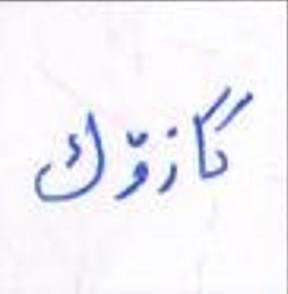 گازۆك